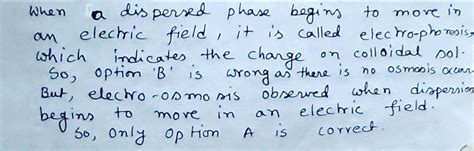 When a dispersed phase begins to move in
an electric field, it is called electro-phoresis,
which indicates the charge on colloidal sol.
So, option 'B' is wrong as there is no osmosis occur.
But, electro-osmosis observed when dispersion
begins to move in an electric field.
So, only option A is correct.